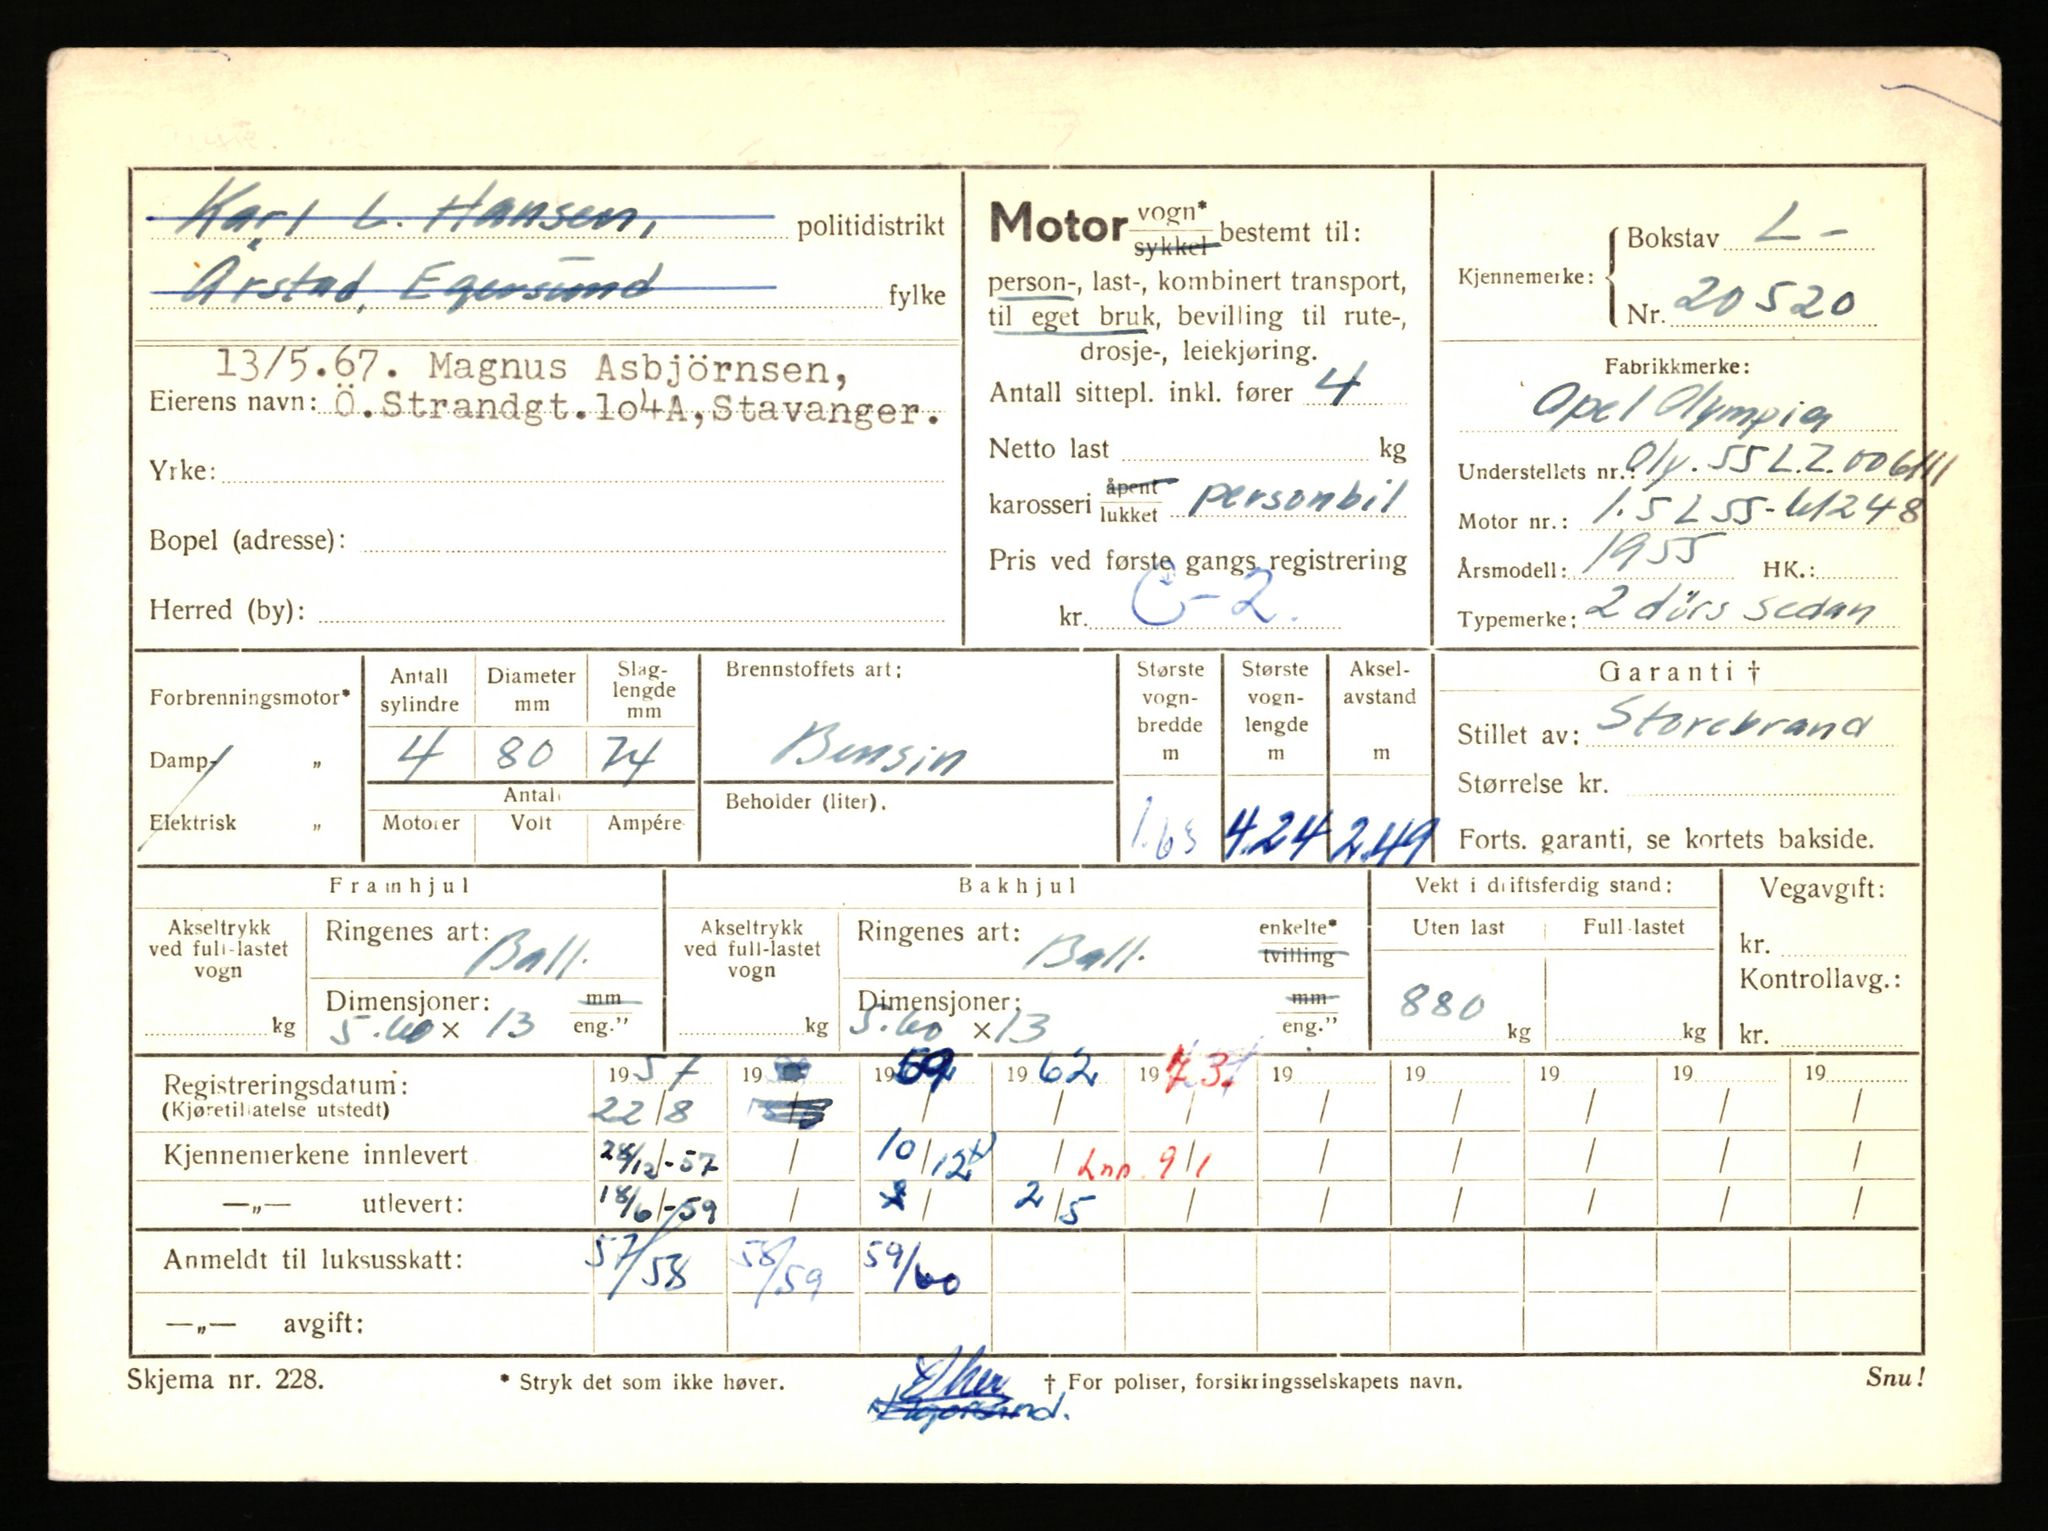 Karl L. Hansen, politidistrikt
Årstad, Egersund fylke
13/5.67. Magnus Asbjörnsen,
Eierens navn: Ö.Strandgt.104A,Stavanger.
Yrke:
Bopel (adresse):
Herred (by):
Motor vogn* sykkel bestemt til:
person-, last-, kombinert transport,
til eget bruk, bevilling til rute-,
drosje-, leiekjøring.
Antall sittepl. inkl. fører 4
Netto last kg
karosseri åpent lukket personbil
Pris ved første gangs registrering
kr. C-2.
Kjennemerke: Bokstav L-
Nr. 20520
Fabrikkmerke:
Opel Olympia
Understellets nr.: Oly. 55 L.Z. 006111
Motor nr.: 1.5 L 55-61248
Årsmodell: 1955 HK.:
Typemerke: 2 dörs sedan
Forbrenningsmotor*
Damp- „
Elektrisk „
Antall sylindre Diameter mm Slaglengde mm
4 80 74
Antall
Motorer Volt Ampére
Brennstoffets art:
Bensin
Beholder (liter).
Største vognbredde m Største vognlengde m Akselavstand m
1.63 4.24 2.49
Garanti †
Stillet av: Storebrand
Størrelse kr.
Forts. garanti, se kortets bakside.
Framhjul
Akseltrykk ved full-lastet vogn kg
Ringenes art: Ball.
Dimensjoner: mm
5.60 x 13 eng."
Bakhjul
Akseltrykk ved full-lastet vogn kg
Ringenes art: Ball. enkelte* tvilling
Dimensjoner: mm
5.60 x 13 eng."
Vekt i driftsferdig stand:
Uten last Full-lastet
880 kg kg
Vegavgift:
kr.
Kontrollavg.:
kr.
Registreringsdatum: 1957 19 19 1962 1973. 19 19 19 19 19
(Kjøretillatelse utstedt) 22/8 / / / / / / / /
Kjennemerkene innlevert 28/12-57 / 10/12 / Inn. 9/1 / / / / /
—„— utlevert: 18/6-59 / / 2/5 / / / / / /
Anmeldt til luksusskatt: 57/58 58/59 59/60
—„— avgift:
Skjema nr. 228. * Stryk det som ikke høver. † For poliser, forsikringsselskapets navn. Snu!
Egersund.